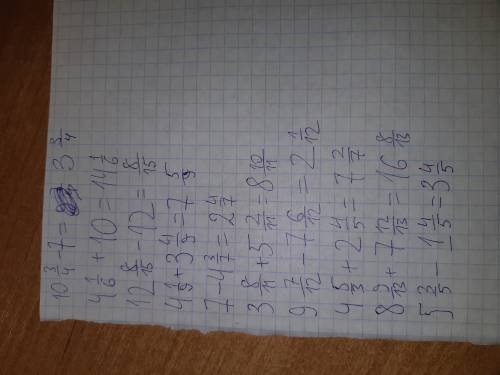 10 3/4 - 7 = 3 3/4
4 1/6 + 10 = 14 1/6
12 8/15 - 12 = 8/15
4 1/9 + 3 4/9 = 7 5/9
7 - 4 3/7 = 2 4/7
3 8/11 + 5 2/11 = 8 10/11
9 7/12 - 7 6/12 = 2 1/12
4 5/3 + 2 4/5 = 7 2/7
8 9/13 + 7 12/13 = 16 8/13
5 2/5 - 1 4/5 = 3 4/5